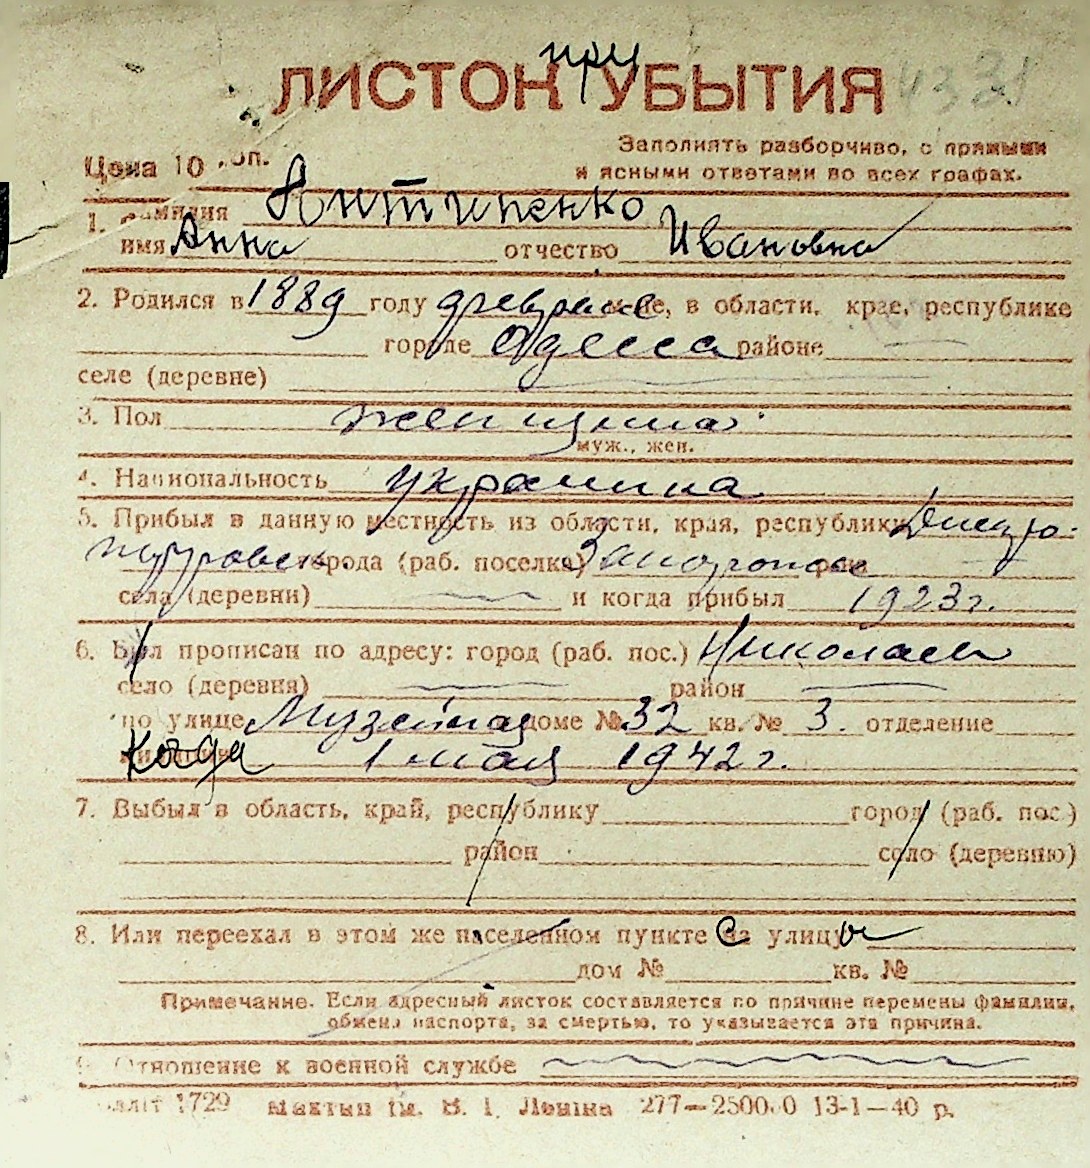 при
ЛИСТОК УБЫТИЯ 4331
Заполнять разборчиво, с прямыми
Цена 10 коп. и ясными ответами во всех графах.
1. Фамилия Антипенко
имя Анна отчество Ивановна
2. Родился в 1889 году феврале м-це, в области, крае, республике
городе Одесса районе
селе (деревне)
3. Пол женщина
муж., жен.
4. Национальность украинка
5. Прибыл в данную местность из области, края, республики Днепро-
петровск. города (раб. поселка) Запорожье р-на
села (деревни) и когда прибыл 1923 г.
6. Был прописан по адресу: город (раб. пос.) Николаев
село (деревня) район
по улице Музейная доме № 32 кв. № 3. отделение
Когда 1 мая 1942 г.
7. Выбыл в область, край, республику город (раб. пос.)
район село (деревню)
8. Или переехал в этом же населенном пункте с улицы
дом № кв. №
Примечание. Если адресный листок составляется по причине перемены фамилии,
обмена паспорта, за смертью, то указывается эта причина.
9. Отношение к военной службе
1729 Ім. В. І. Леніна 277—2500.0 13-1—40 р.